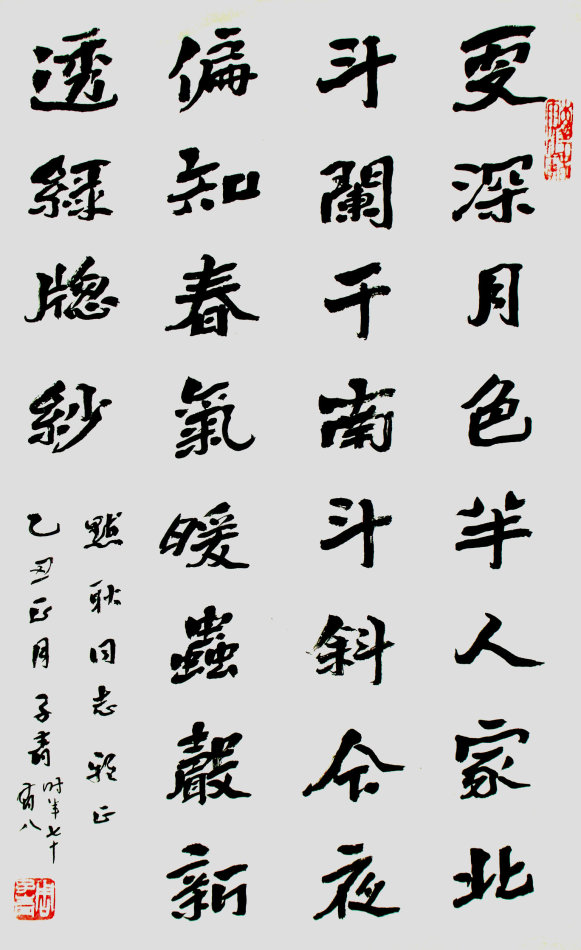 更深月色半人家北
斗闌干南斗斜今夜
偏知春氣暖蟲聲新
透綠牕紗
默耿同志雅正
乙丑正月子青
時年七十
有八